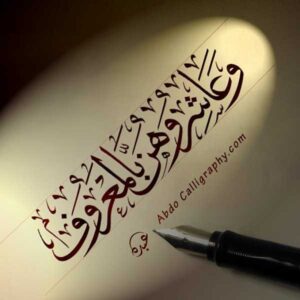 وعاشروهن بالمعروف
Abdo Calligraphy.com
عبده